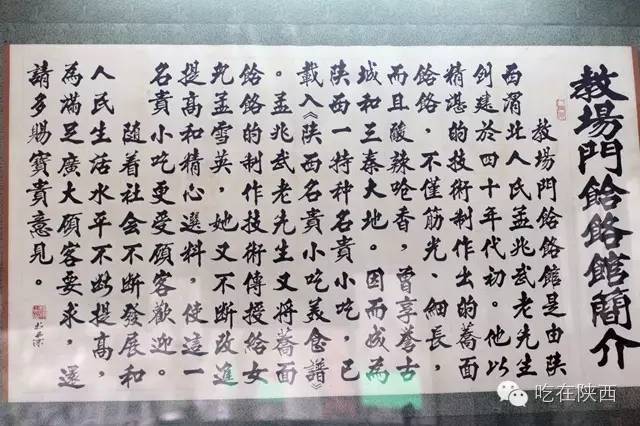 教場門餄餎館簡介
教場門餄餎館是由陝
西渭北人氏孟兆武老先生
创建於四十年代初。他以
精湛的技術制作出的蕎面
餄餎，不僅筋光、細長，
而且酸辣嗆香，曾享譽古
城和三秦大地。因而成為
陝西一特种名貴小吃，已
載入《陝西名貴小吃美食譜》
。孟兆武老先生又將蕎面
餄餎的制作技術傳授給女
兒孟雪英，她又不断改進
提高和精心選料，使這一
名貴小吃更受顧客歡迎。
隨着社会不断發展和
人民生活水平不断提高，
為滿足廣大顧客要求，遂
請多賜寶貴意見。
吃在陕西